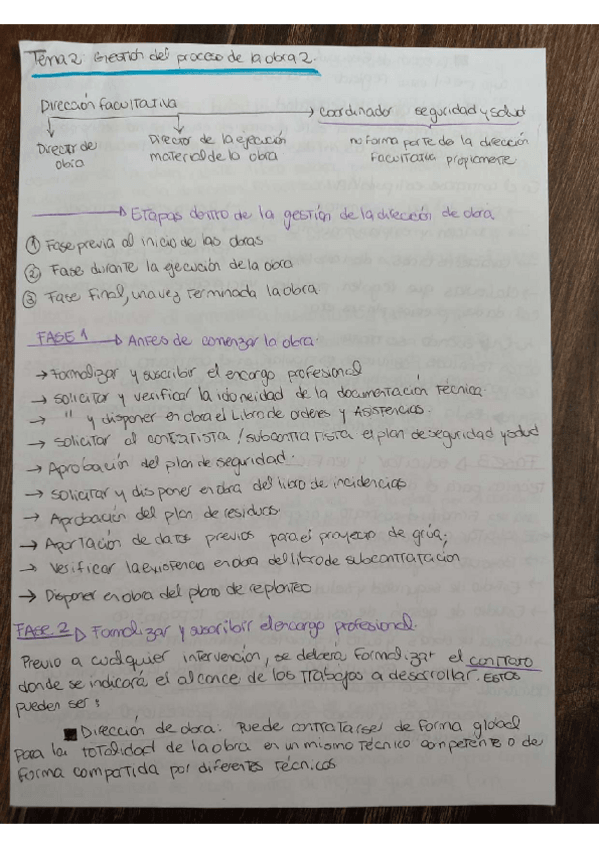 Tema 2: Gestión del proceso de la obra 2.
Dirección Facultativa → coordinador seguridad y salud
Director de obra
Director de la ejecución material de la obra
no forma parte de la dirección Facultativa propiamente
→ Etapas dentro de la gestión de la dirección de obra
① Fase previa al inicio de las obras
② Fase durante la ejecución de la obra
③ Fase Final, una vez terminada la obra.
FASE 1 → Antes de comenzar la obra.
→ Formalizar y suscribir el encargo profesional
→ solicitar y verificar la idoneidad de la documentación técnica.
→ " y disponer en obra el Libro de ordenes y Asistencias.
→ solicitar al contratista / subcontratista el plan de seguridad y salud
→ Aprobación del plan de seguridad.
→ solicitar y disponer en obra del libro de incidencias
→ Aprobación del plan de residuos.
→ Aportación de datos previos para el proyecto de grúa.
→ verificar la existencia en obra del libro de subcontratación
→ Disponer en obra del plano de replanteo
FASE 2 → Formalizar y suscribir el encargo profesional.
Previo a cualquier intervención, se deberá formalizar el contrato
donde se indicará el alcance de los trabajos a desarrollar. Estos
pueden ser:
■ Dirección de obra: Puede contratarse de forma global
para la totalidad de la obra en un mismo técnico competente o de
forma compartida por diferentes técnicos